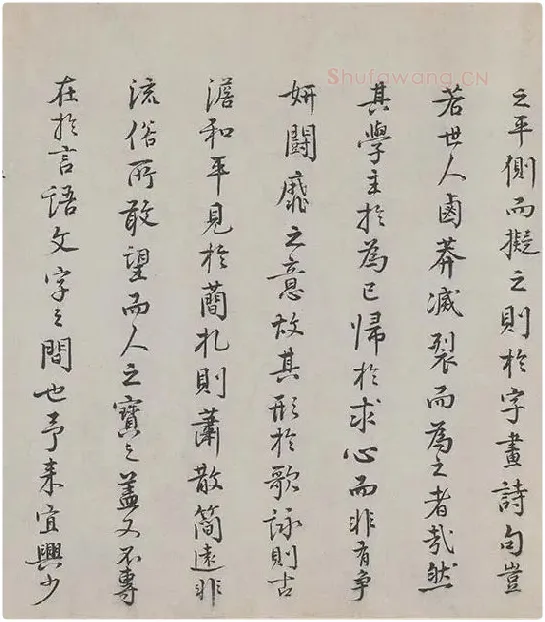 Shufawang.CN
之平側而擬之則於字畫詩句豈
若世人鹵莽滅裂而為之者哉然
其學主於為己歸於求心而非有争
妍鬪靡之意故其形於歌詠則古
澹和平見於蕳札則蕭散簡遠非
流俗所敢望而人之寶之蓋又不專
在於言語文字之間也予来宜興少